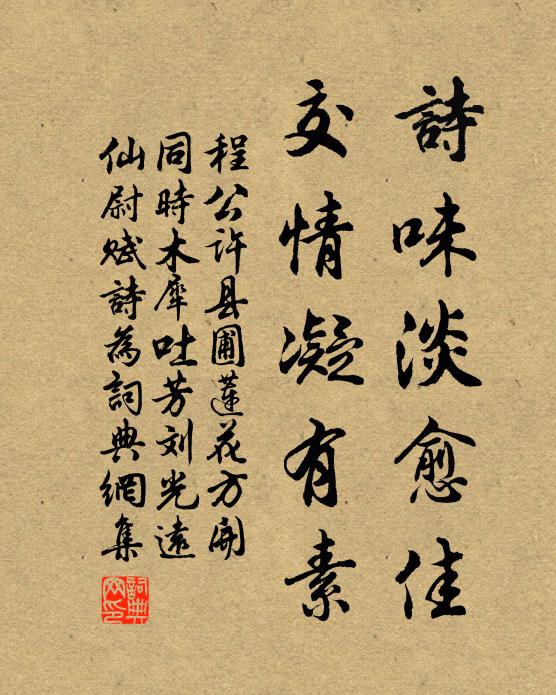 詩味淡愈佳
交情凝有素
程公許县圃蓮花方開
同時木犀吐芳刘光遠
仙尉赋詩為詞典網集
詞典网印